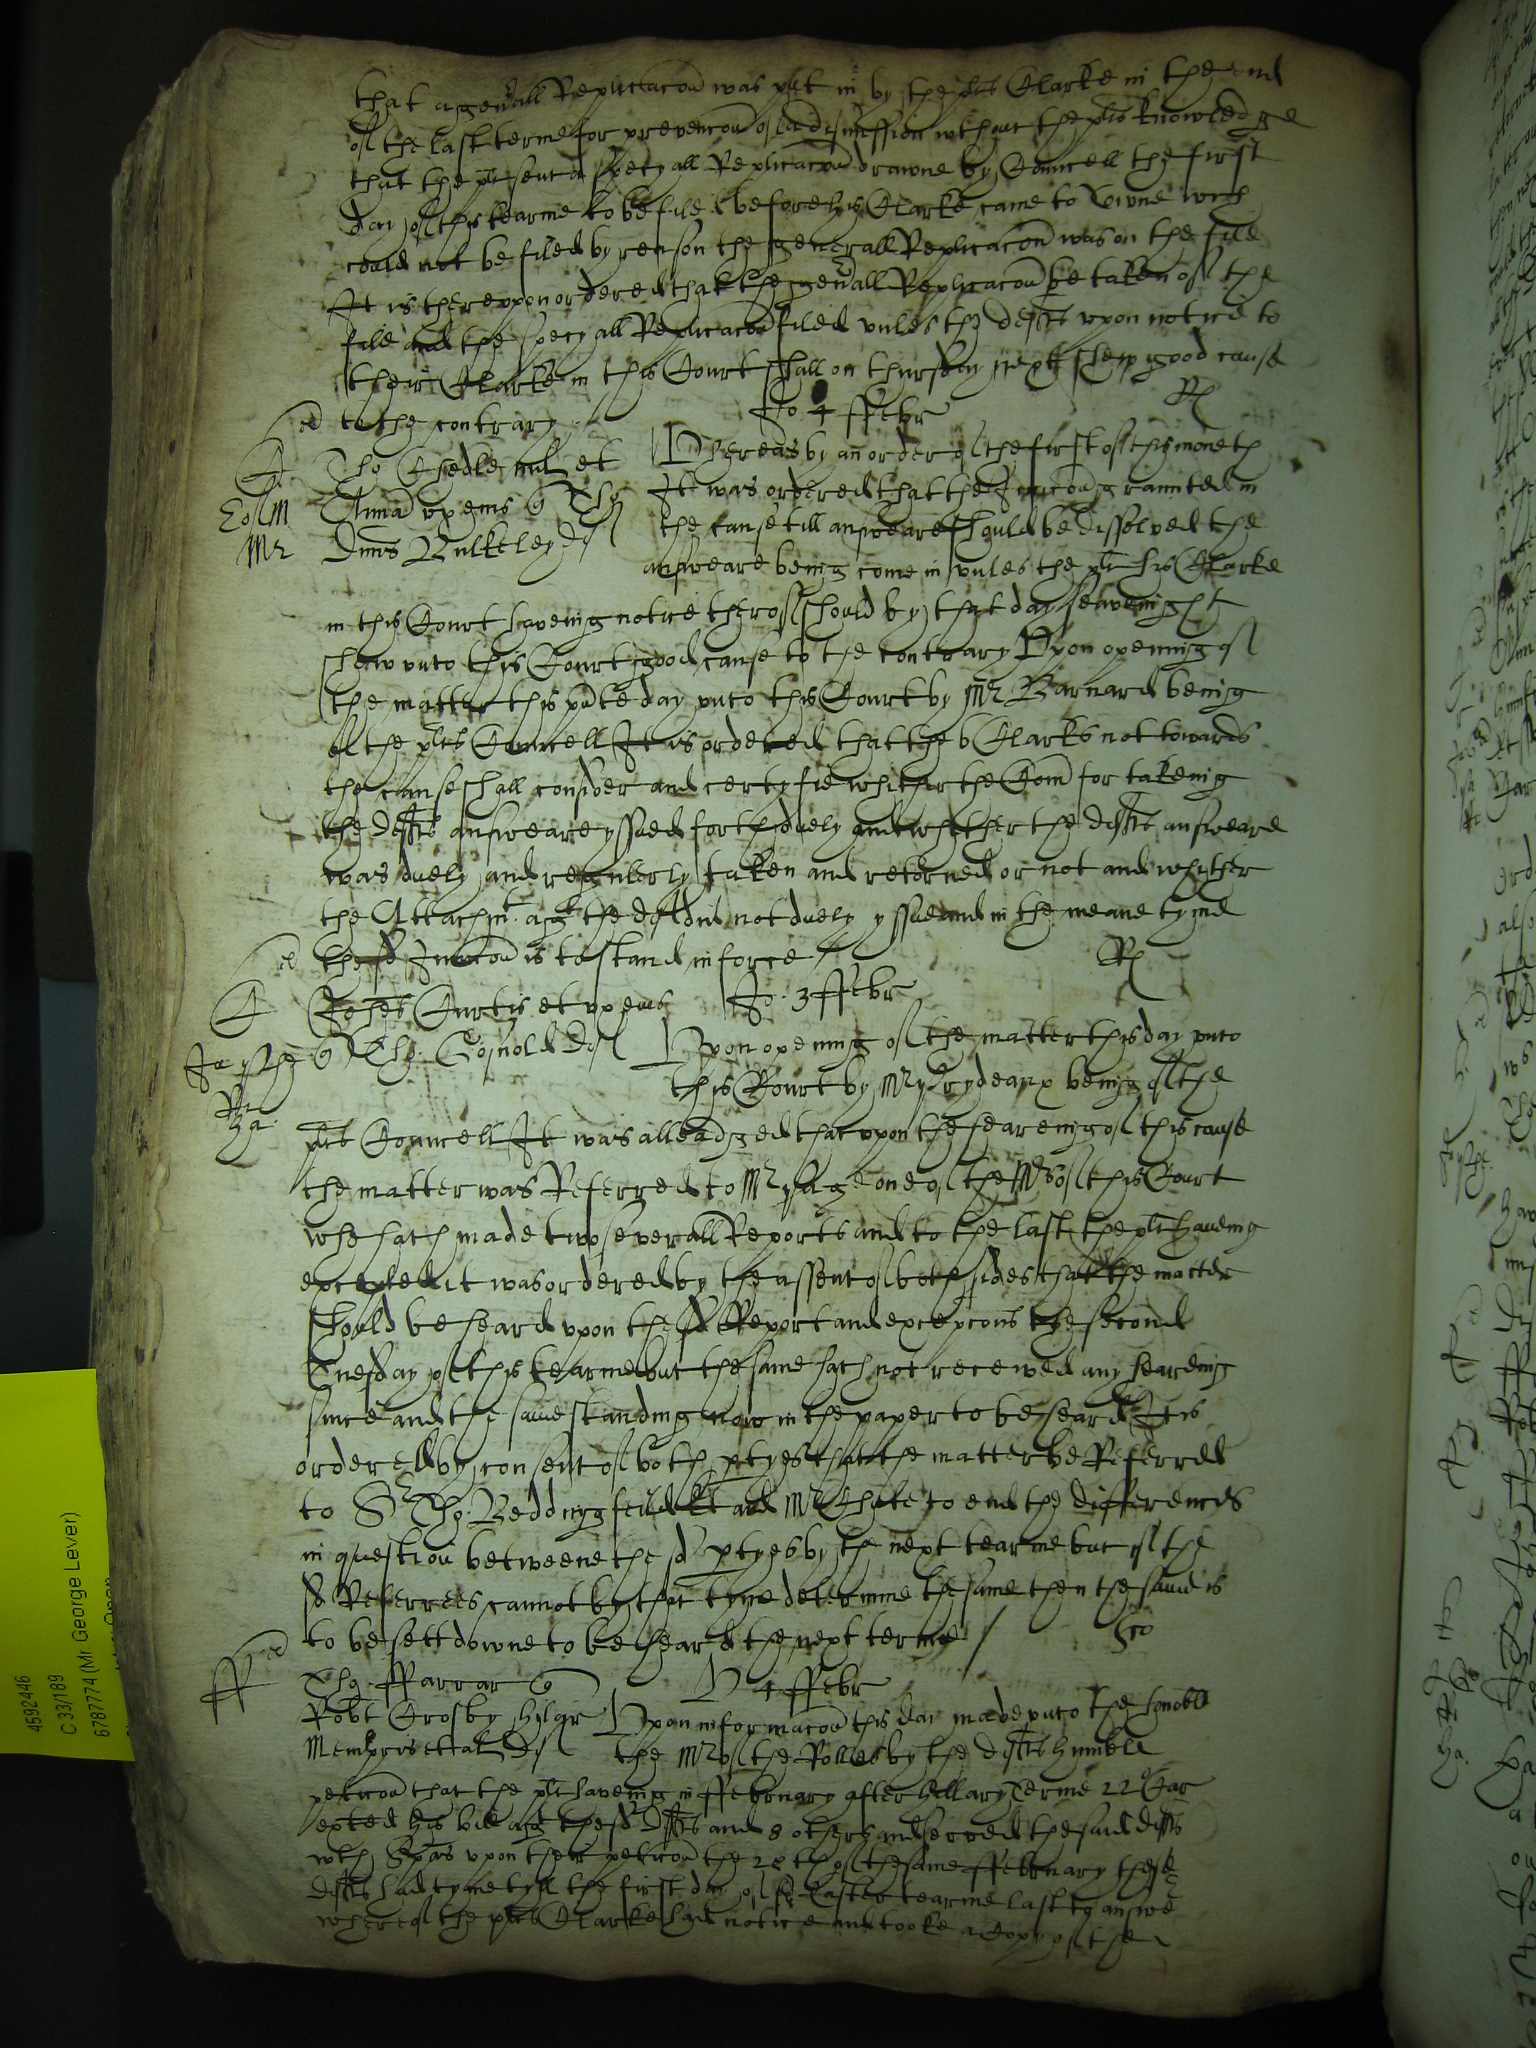 that a gen'all Replicacon was put in by the plts Clarke in the end
of the last terme for prevencon of a dismission wthout the plts knowledge
that the plt sent a specyall Replicacon drawne by Councell the first
day of this tearme to be filed before his Clarke came to Towne wch
could not be filed by reason the generall Replicacon was on the file
It is thereupon ordered that the gen'all Replicacon be taken of the
file and the specyall Replicacon filed unles the defts upon notice to
their Clarke in this Court shall on thursday next shew good cause
to the contrary
Jo 4 ffebr
Whereas by an order of the first of this moneth
It was ordered that the Iniuccon graunted in
Anna ux eius
the cause till answeare should be dissolved the
Bulkeley def
answeare being come in unles the plt his Clarke
in this Court haveing notice therof should by that day seavenight
shew unto this Court good cause to the contrary Upon opening of
the matter this p'nte day unto this Court by Mr Barnard being
of the plts Councell It is ordered that the 6 Clarks not towards
the cause shall consider and certyfie whither the Com for takeing
the defts answeare yssued forth duely and whether the defts answeare
was duely and regulerly taken and retorned or not and whither
the Attachmt agt the def did not duely yssue and in the meane tyme
the sd Iniuccon is to stand in force
Johes Curtis et ux eius
Jo. 3 ffebr
Tho. Cosnold def
Upon opening of the matter this day unto
this Court by Mr Prydeaux being of the
plts Councell It was alleadged that upon the heareing of this cause
the matter was Referred to Mr Page one of the Mrs of this Court
who hath made two severall Reports and to the last the plt haveing
excepted it was ordered by the assent of both sides that the matter
should be heard upon the sd Report and excepcons the second
Tuesday of this tearme but the same hath not receeved any heareing
since and the same standing now in the paper to be heard It is
ordered by consent of both ptyes that the matter be Referred
to Sr Tho. Beddingfeild kt and Mr Chute to end the differences
in question betweene the sd ptyes by the next tearme but if the
sd Referrees cannot by that tyme determine the same then the same is
to be sett downe to be heard the next terme
Tho ffarrar
4 ffebr
Robt Crosby
Upon informacon this day made unto the honoble
et al def
the Mr of the Rolles by the defts humble
peticon that the plt haveing in ffebruary after hillary Terme 22 Car
exted his bill agt the sd defts and 8 others and served the said defts
wth Spas upon their peticon the 28th of the same ffebruary these
defts had tyme tyll the first day of Easter tearme last to answe
whereof the plts Clarke had notice and tooke a Copy of the
4592446
C 33/189
6787774 (Mr. George Lever)